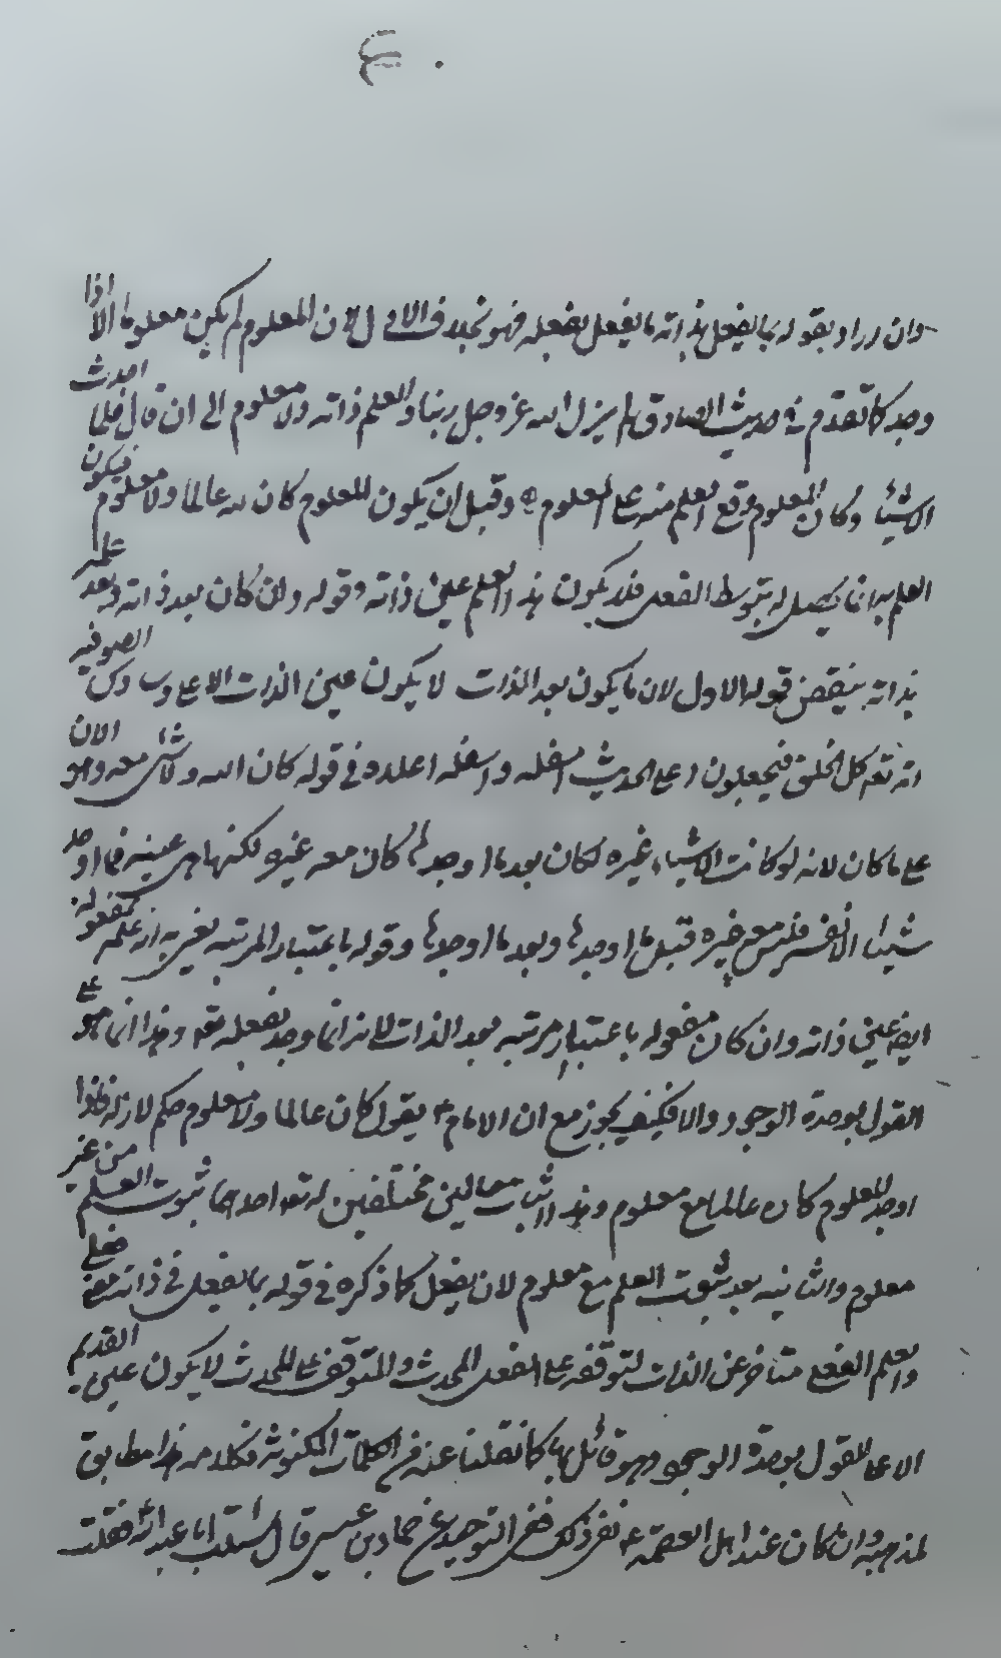 وان اراد بقوله بما يفعل بذاته ما يفعل بفعله فهو بخلاف الاول لان المعلوم لم يكن معلوما الا اذا
وجد كما تقدم في حديث الصادق لم يزل الله عز وجل ربنا والعلم ذاته ولا معلوم الى ان قال فلما احدث
الاشياء وكان المعلوم وقع العلم منه على المعلوم وقبل ان يكون المعلوم كان الله عالما ولا معلوم فيكون
العلم به انما يحصل له بتوسط الفعل فلا يكون هذا العلم عين ذاته وقوله وان كان بعد ذاته وبعد علمه
بذاته ينقض قوله الاول لان ما يكون بعد الذات لا يكون عين الذات الا على الصوفية
انه تعالى كل الخلق فيجعلون اعلى الحديث اسفله واسفله اعلاه في قوله كان الله ولا شيء معه وهو الان
على ما كان لانه لو كانت الاشياء غيره لكان بعد ما اوجدها كان معه غيره لكنها هي عينه فما اوجد
شيئا الا نفسه فليس معه غيره قبل ما اوجدها وبعد ما اوجدها وقوله باعتبار المرتبة يعني به ان علمه بمفعوله
ايضا عين ذاته وان كان مفعوله باعتبار مرتبته بعد الذات لانه انما وجد بفعله تعالى وهذا انما هو على
القول بوحدة الوجود والا فكيف يجوز مع ان الامام ع يقول كان عالما ولا معلوم حكم لازله فاذا
اوجد المعلوم كان عالما مع معلوم وهذا اثبات حالين مختلفين له تعالى احدهما ثبوت العلم من غير
معلوم والثانية بعد ثبوت العلم مع معلوم لان يفعل كما ذكره في قوله بما يفعل في ذاته فعلي
والعلم الفعلي متاخر عن الذات لتوقفه على الفعل المحدث والمتوقف على المحدث لا يكون عين القديم
الا على القول بوحدة الوجود وهو قائل بها كما نقلنا عنه في الكلمات المكنونة فكلامه هذا مطابق
لمذهبه وان كان عند اهل العصمة ع نفي ذلك ففي التوحيد عن حماد بن عيسى قال سئلت ابا عبد الله فقلت